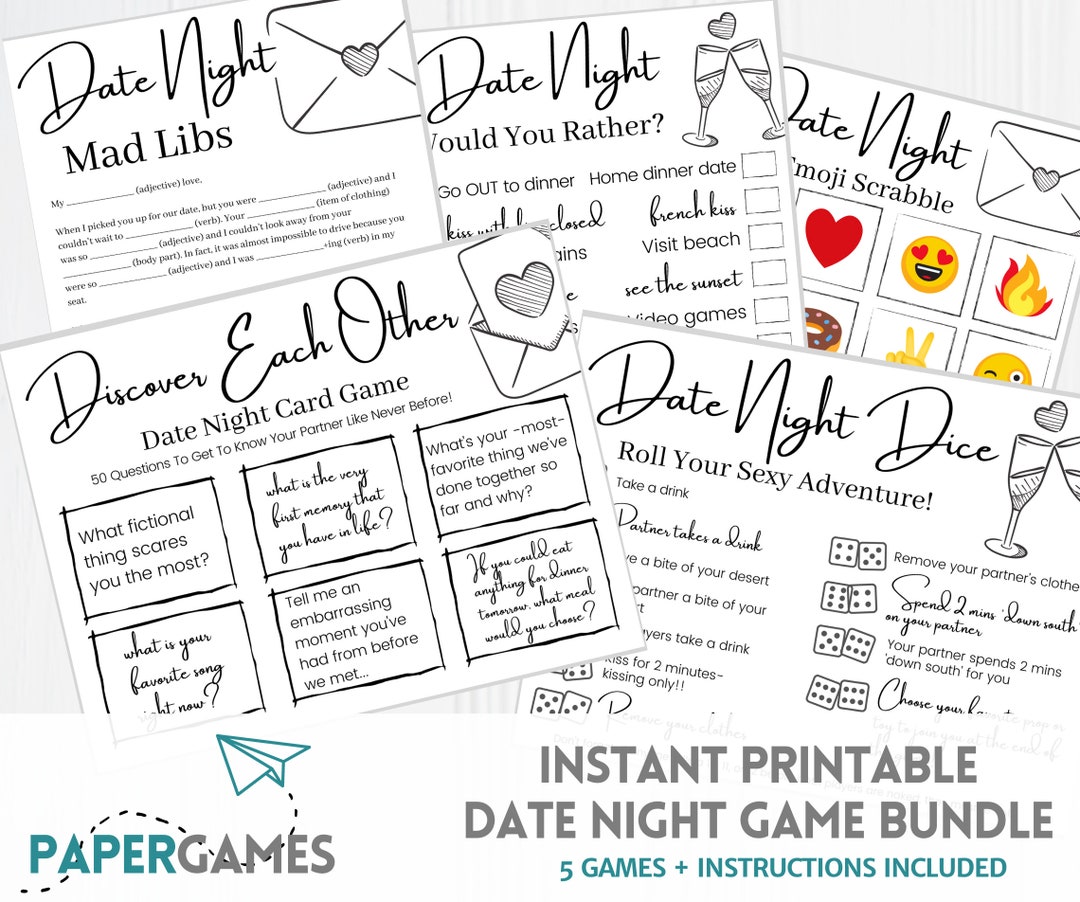 Date Night
Mad Libs
My ____________ (adjective) love,
When I picked you up for our date, but you were ____________ (adjective) and I
couldn't wait to ____________ (verb). Your ____________ (item of clothing)
was so ____________ (adjective) and I couldn't look away from your
____________ (body part). In fact, it was almost impossible to drive because you
were so ____________ (adjective) and I was ____________+ing (verb) in my
seat.
Date Night
Would You Rather?
Go OUT to dinner Home dinner date
kiss with closed french kiss
Visit beach
see the sunset
Video games
Date Night
Emoji Scrabble
Discover Each Other
Date Night Card Game
50 Questions To Get To Know Your Partner Like Never Before!
What fictional
thing scares
you the most?
what is the very
first memory that
you have in life?
What's your -most-
favorite thing we've
done together so
far and why?
what is your
favorite song
right now?
Tell me an
embarrassing
moment you've
had from before
we met...
If you could eat
anything for dinner
tomorrow, what meal
would you choose?
Date Night Dice
Roll Your Sexy Adventure!
Take a drink
Partner takes a drink
a bite of your desert
partner a bite of your
take a drink
Kiss for 2 minutes-
kissing only!!
Remove your clothes
Remove your partner's clothe
Spend 2 mins 'down south'
on your partner
Your partner spends 2 mins
'down south' for you
Choose your favorite prop or
toy to join you at the end of
INSTANT PRINTABLE
DATE NIGHT GAME BUNDLE
5 GAMES + INSTRUCTIONS INCLUDED
PAPERGAMES